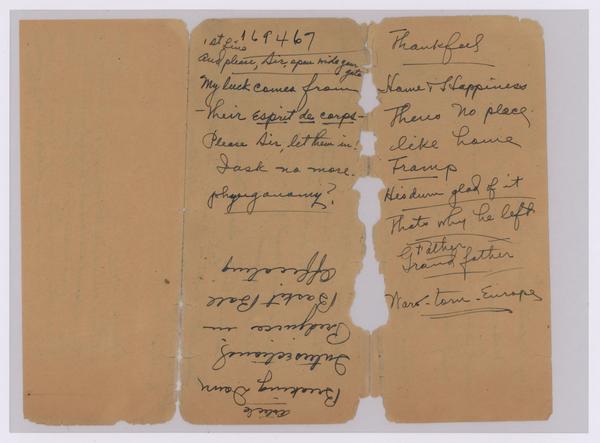 1st line 169467
And please, Sir, open wide your gate
My luck comes from
- their Esprit de corps -
Please Sir, let them in!
I ask no more.
phyorganomy?
Article
Breaking Down
Intersectional
Prejudice in
Basket Ball
Officiating
Thankful
Home & Happiness
Theres No place
like home
Tramp
He's durn glad of it
Thats why he left
Father
Grand father
War-torn-Europe